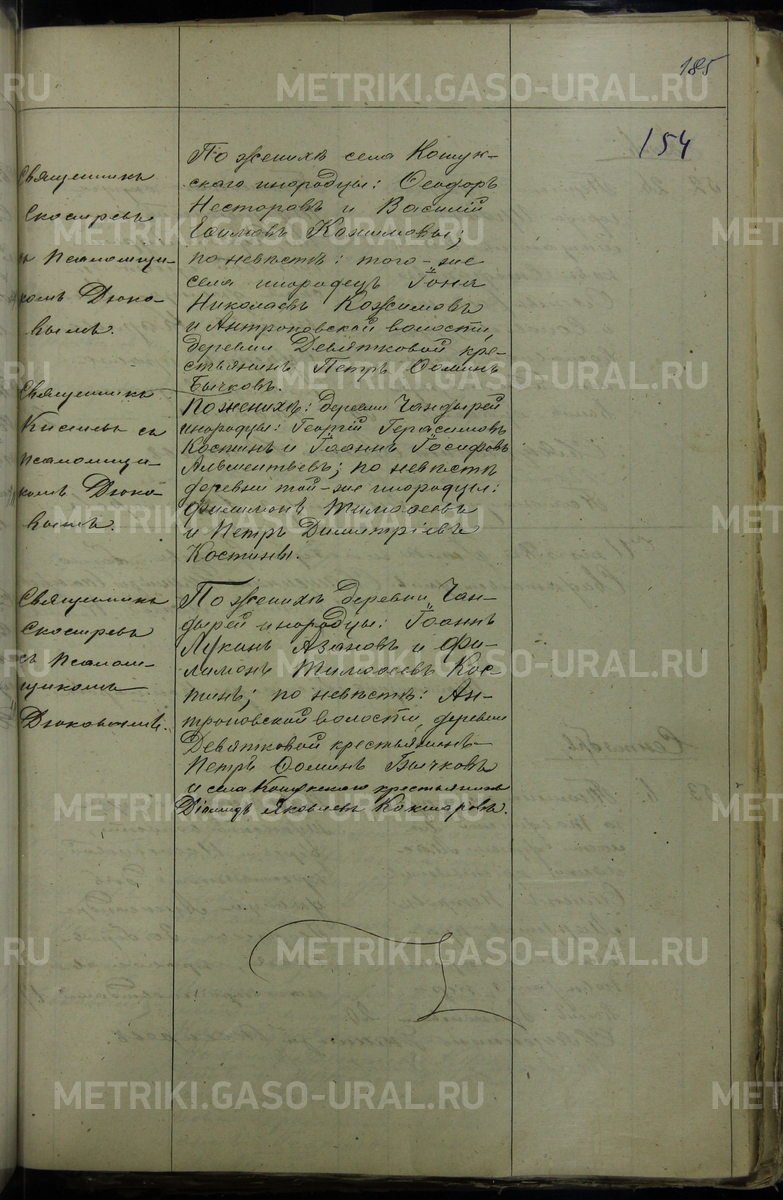 185
154
Священникъ
Скосыревъ
съ Псаломщи-
комъ Дюко-
вымъ.
По женихѣ села Кошук-
скаго инородцы: Ѳеодоръ
Несторовъ и Василій
Ефимовъ Кажимовы;
по невѣстѣ: того-же
села инородецъ Іона
Николаевъ Кажимовъ
и Антроповской волости,
деревни Девятковой кре-
стьянинъ Петръ Ѳоминъ
Бычковъ.
Священникъ
Киселевъ съ
псаломщи-
комъ Дюко-
вымъ.
По женихѣ: деревни Чандырей
инородцы: Георгій Герасимовъ
Костинъ и Іоаннъ Іосифовъ
по невѣстѣ
деревни той-же инородцы:
Филимонъ Тимоѳеевъ
и Петръ Димитріевъ
Костины.
Священникъ
Скосыревъ
съ Псалом-
щикомъ
Дюковымъ.
По женихѣ деревни Чан-
дырей инородцы: Іоаннъ
Лукинъ Азановъ и Фи-
лимонъ Тимоѳеевъ Кос-
тинъ; по невѣстѣ: Ан-
троповской волости, деревни
Девятковой крестьянинъ
Петръ Ѳоминъ Бычковъ
и села Кошукскаго крестьянинъ
Діомидъ Яковлевъ Кокшаровъ.
METRIKI.GASO-URAL.RU